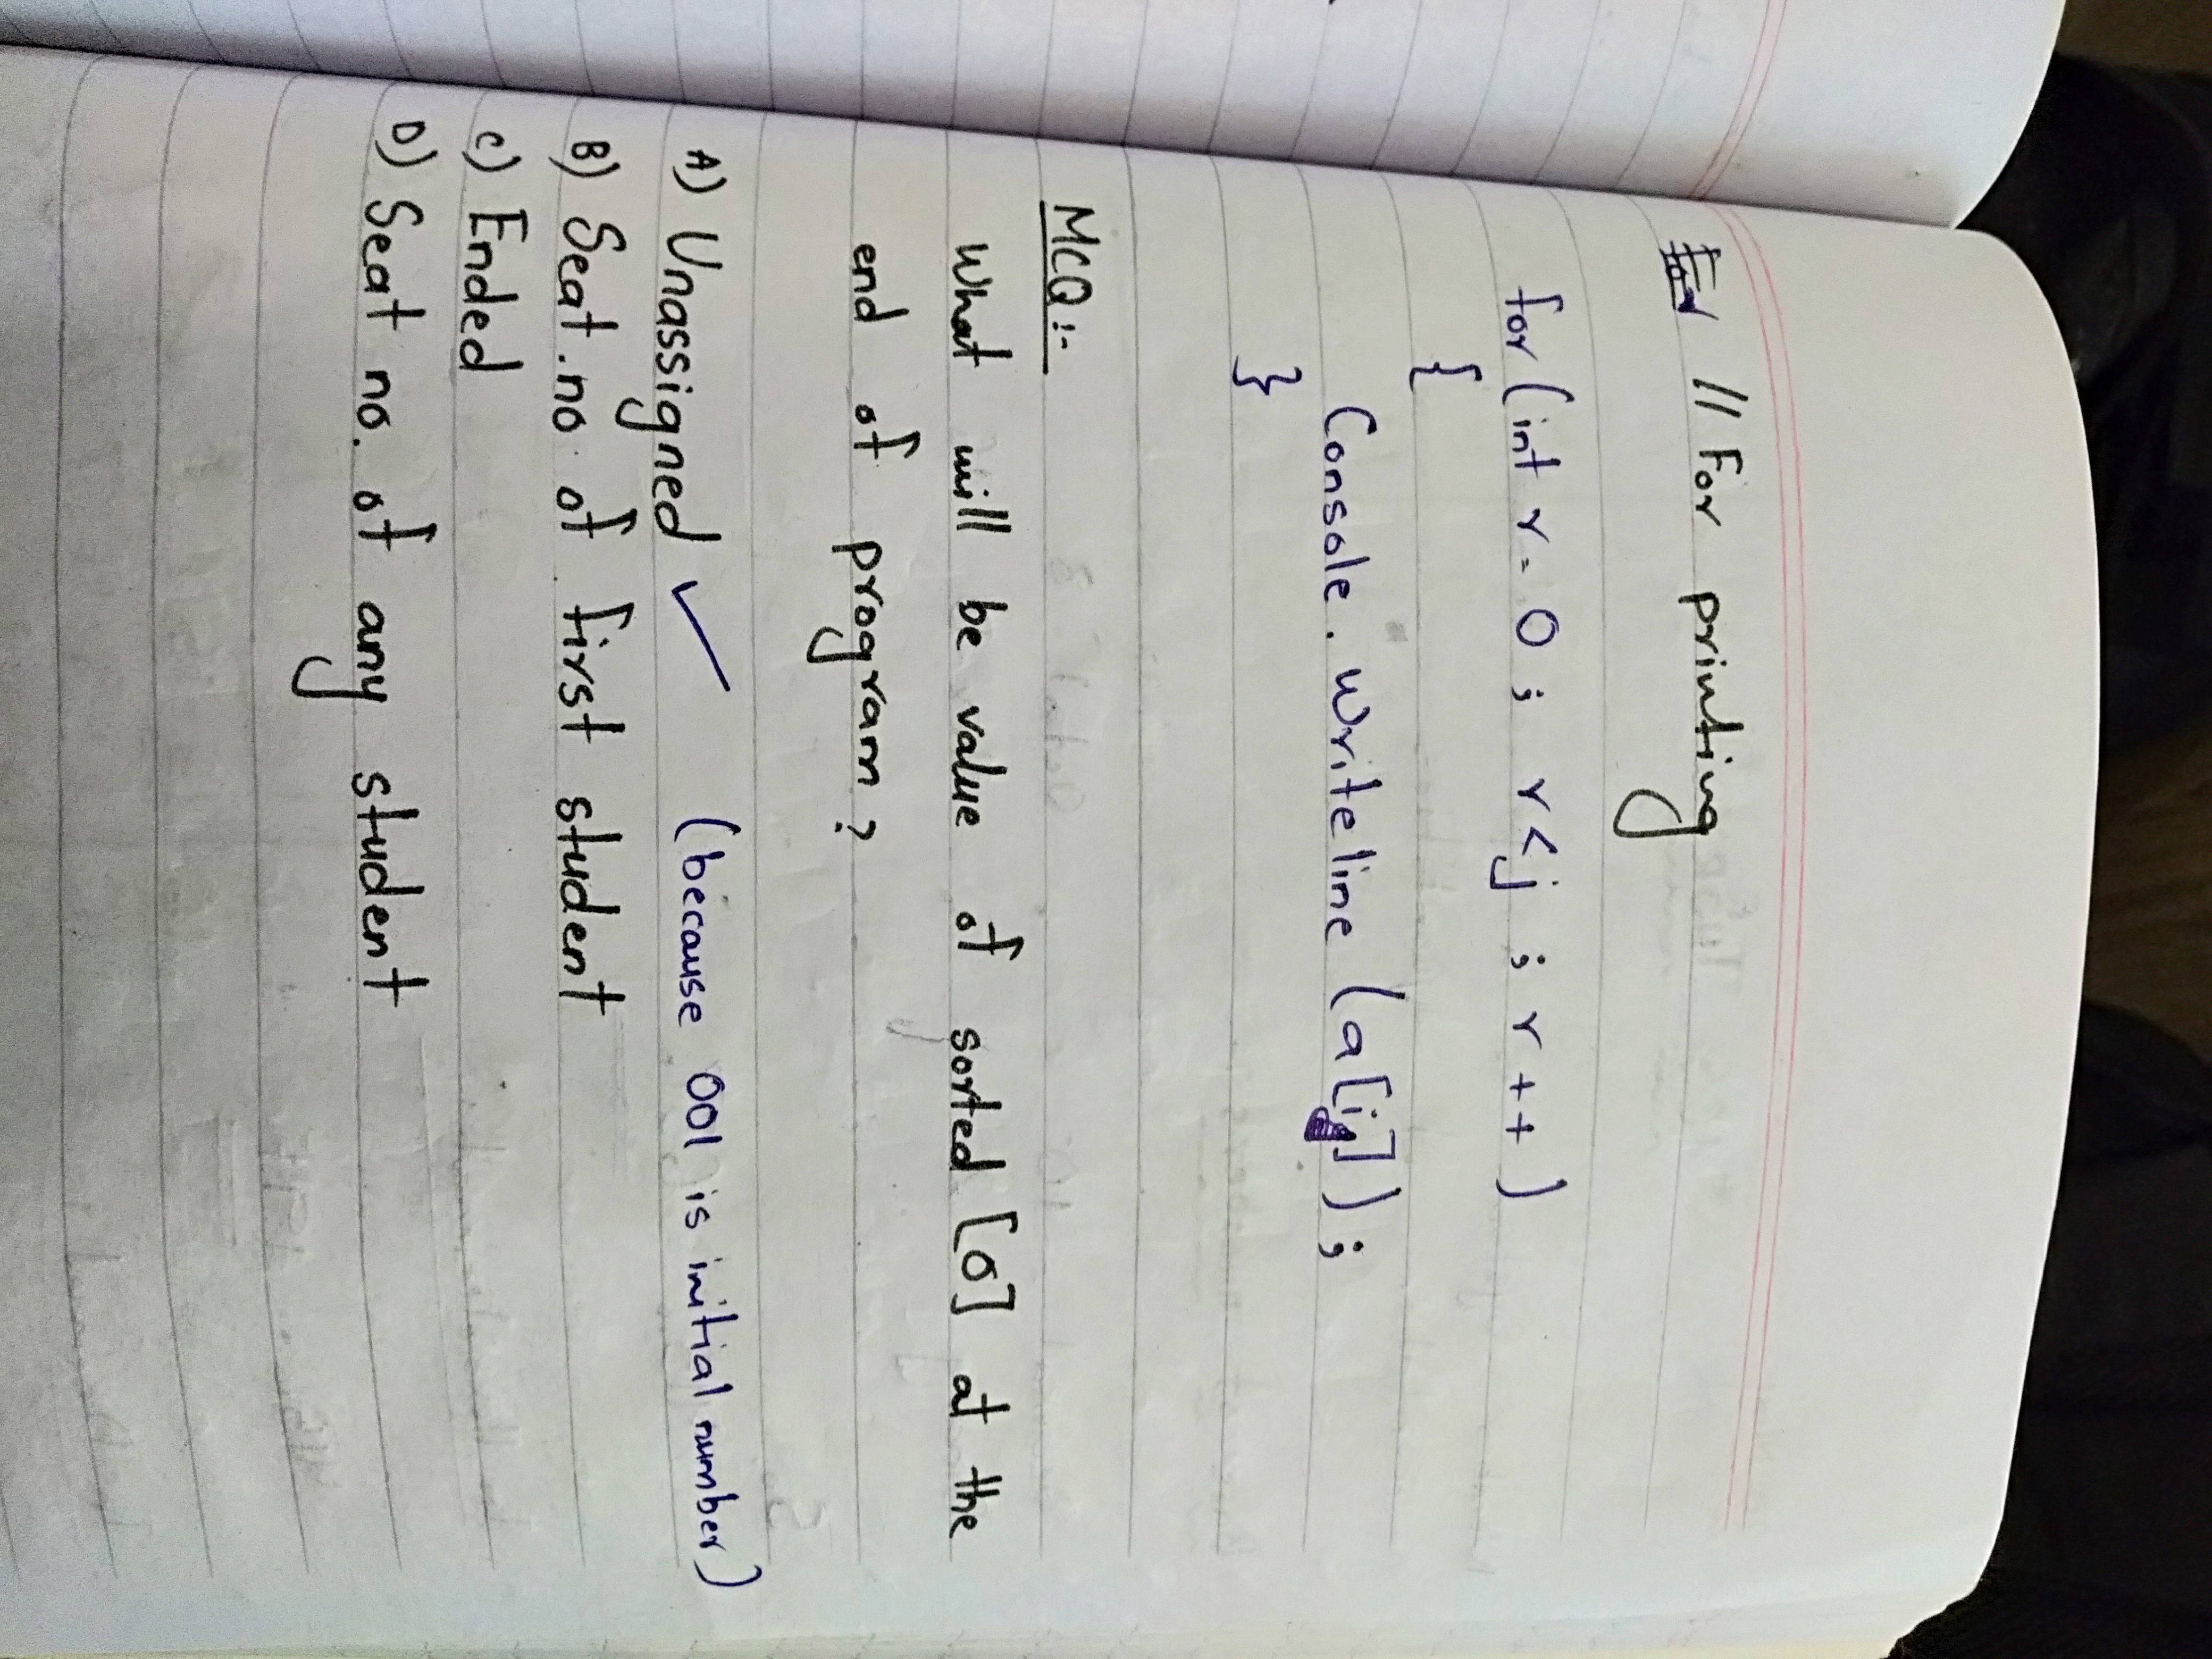 // For printing
for (int r = 0 ; r < j ; r++)
{
Console. Writeline (a[i]) ;
}
MCQ:-
What will be value of sorted [0] at the
end of program ?
A) Unassigned ✓ (because 001 is initial number)
B) Seat. no. of first student
C) Ended
D) Seat no. of any student